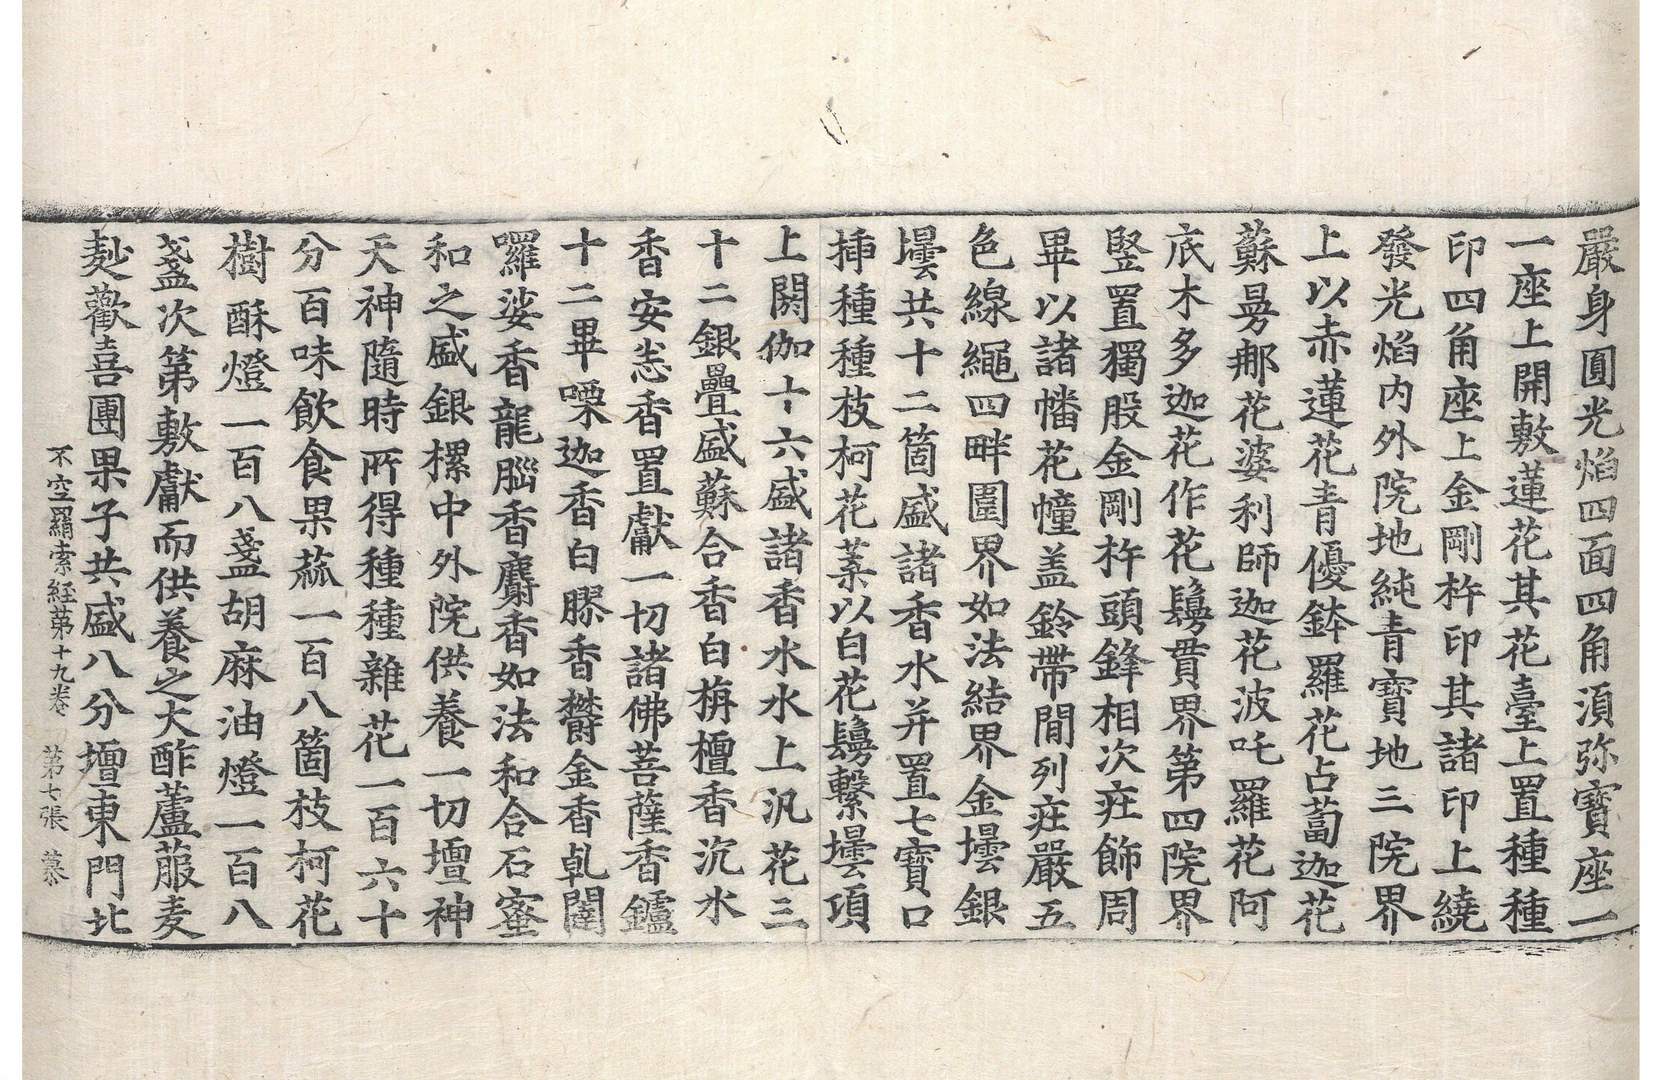 嚴身圓光焰四面四角須弥寶座一
一座上開敷蓮花其花臺上置種種
印四角座上金剛杵印其諸印上繞
發光焰內外院地純青寶地三院界
上以赤蓮花青優鉢羅花占蔔迦花
蘇曼郍花婆利師迦花波吒羅花阿
底木多迦花作花鬘貫界第四院界
竪置獨股金剛杵頭鋒相次疘飾周
畢以諸幡花幢盖鈴帶間列疘嚴五
色線繩四畔圍界如法結界金壜銀
壜共十二箇盛諸香水幷置七寶口
揷種種枝柯花菓以白花鬘繫壜項
上閼伽十六盛諸香水水上汎花三
十二銀疊盛蘇合香白栴檀香沉水
香安悉香置獻一切諸佛菩薩香鑪
十二畢㗚迦香白膠香欎金香乹闥
囉娑香龍腦香麝香如法和合石蜜
和之盛銀樏中外院供養一切壇神
天神隨時所得種種雜花一百六十
分百味飮食果蓏一百八箇枝柯花
樹酥燈一百八盞胡麻油燈一百八
盞次第敷獻而供養之大酢蘆菔麦
麨歡喜團果子共盛八分壇東門北
不空羂索経苐十九卷 第七張 慕